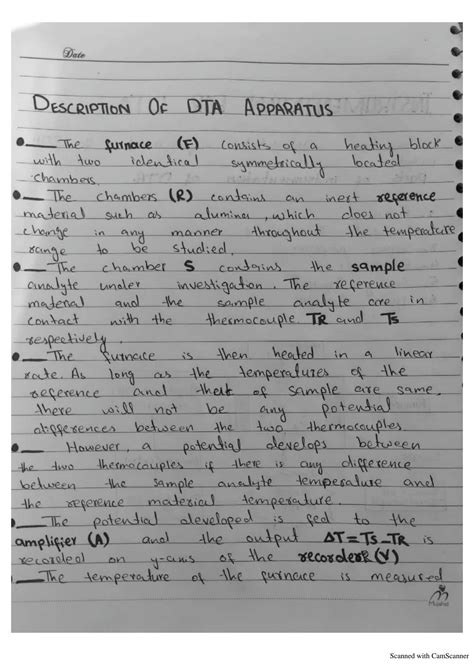 Date
DESCRIPTION OF DTA APPARATUS
The furnace (F) consists of a heating block
with two identical symmetrically located
chambers.
The chambers (R) contains an inert reference
material such as alumina, which does not
change in any manner throughout the temperature
range to be studied.
The chamber S contains the sample
analyte under investigation. The reference
material and the sample analyte are in
contact with the thermocouple TR and Ts
respectively.
The furnace is then heated in a linear
rate. As long as the temperatures of the
reference and that of sample are same,
there will not be any potential
differences between the two thermocouples.
However, a potential develops between
the two thermocouples if there is any difference
between the sample analyte temperature and
the reference material temperature.
The potential developed is fed to the
amplifier (A) and the output ΔT=Ts-TR is
recorded on y-axis of the recorder (V)
The temperature of the furnace is measured
Scanned with CamScanner